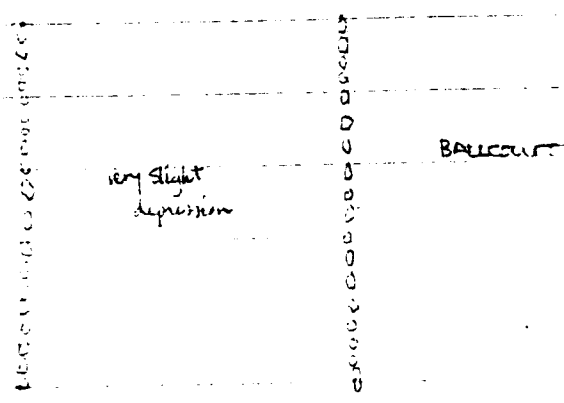 very slight
depression
BALLCOURT